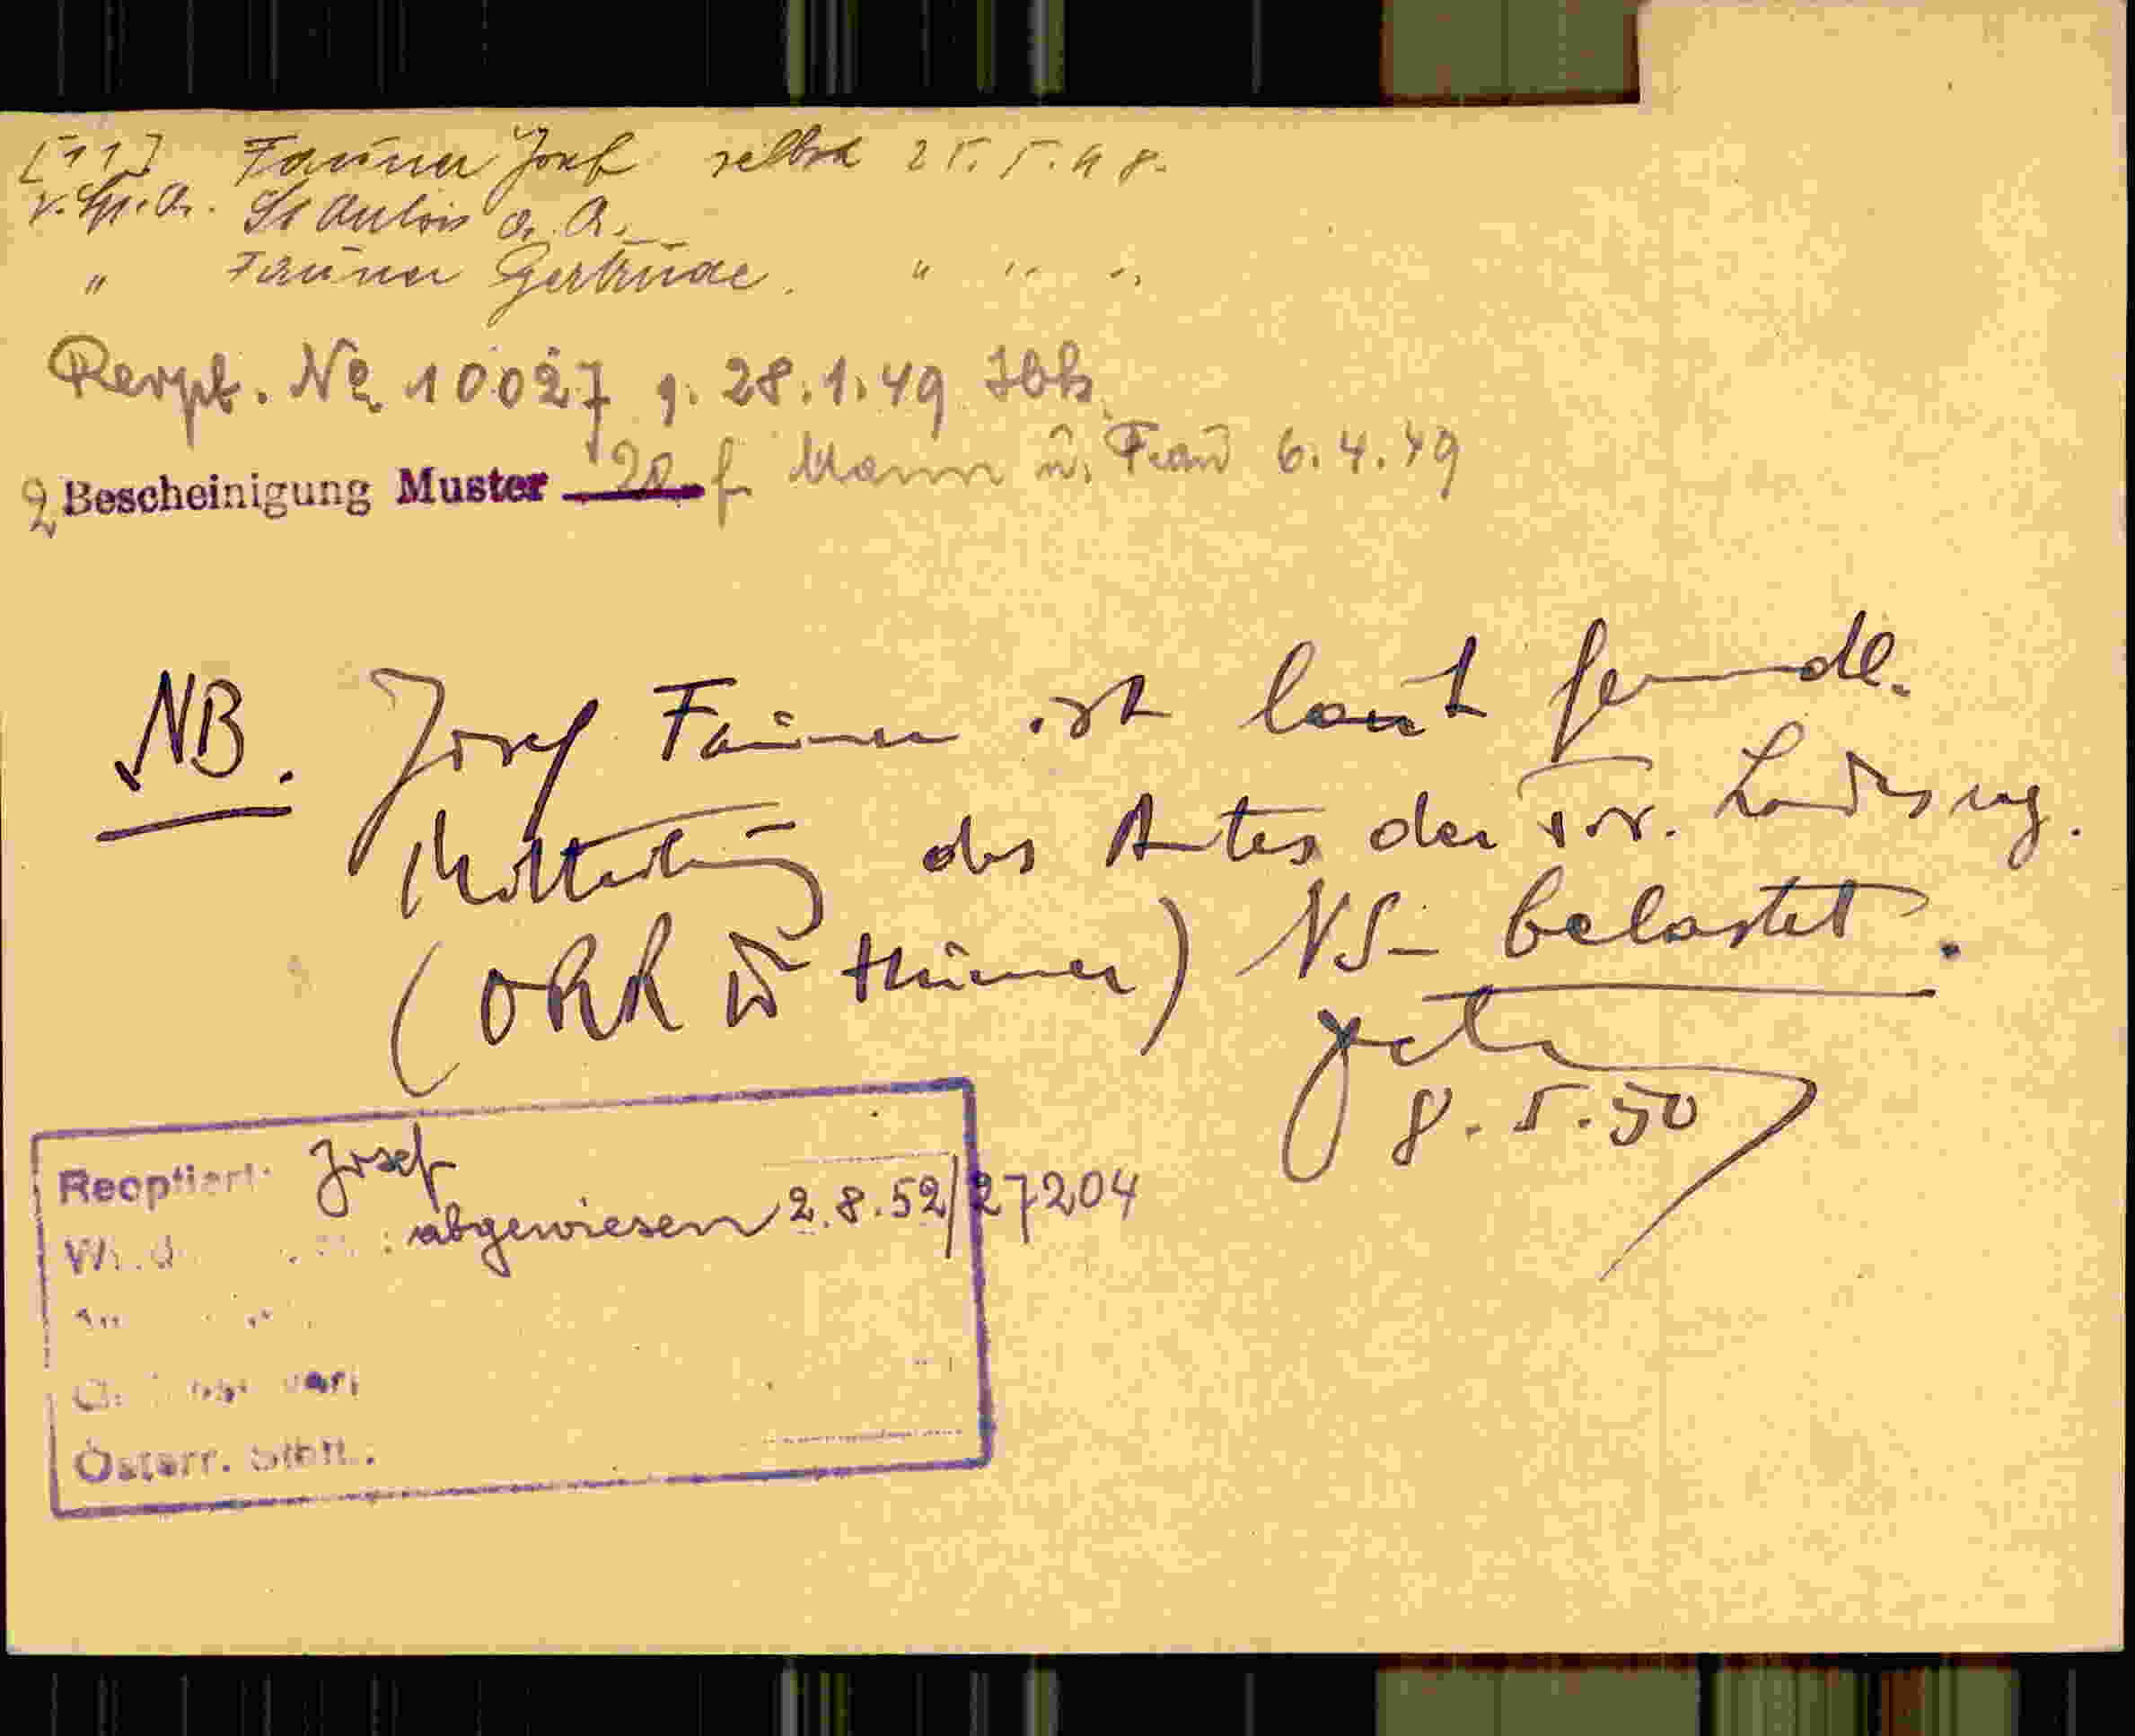 [11] Fauner Josef selbst 25.5.48.
St Anton a. A.
" Fauner Gertrude. " " "
Rerpt. No 10027 v. 28.1.49 Ibk.
2 Bescheinigung Muster 20 f. Mann u. Frau 6.4.49
NB. Josef Fauner ist laut fernmdl.
Mitteilung des Amtes der Tir. Landesreg.
(ORR Dr Thurner) NS-belastet.
8.5.50
Reoptiert: Josef
abgewiesen 2.8.52/27204
Österr. Stbü.: